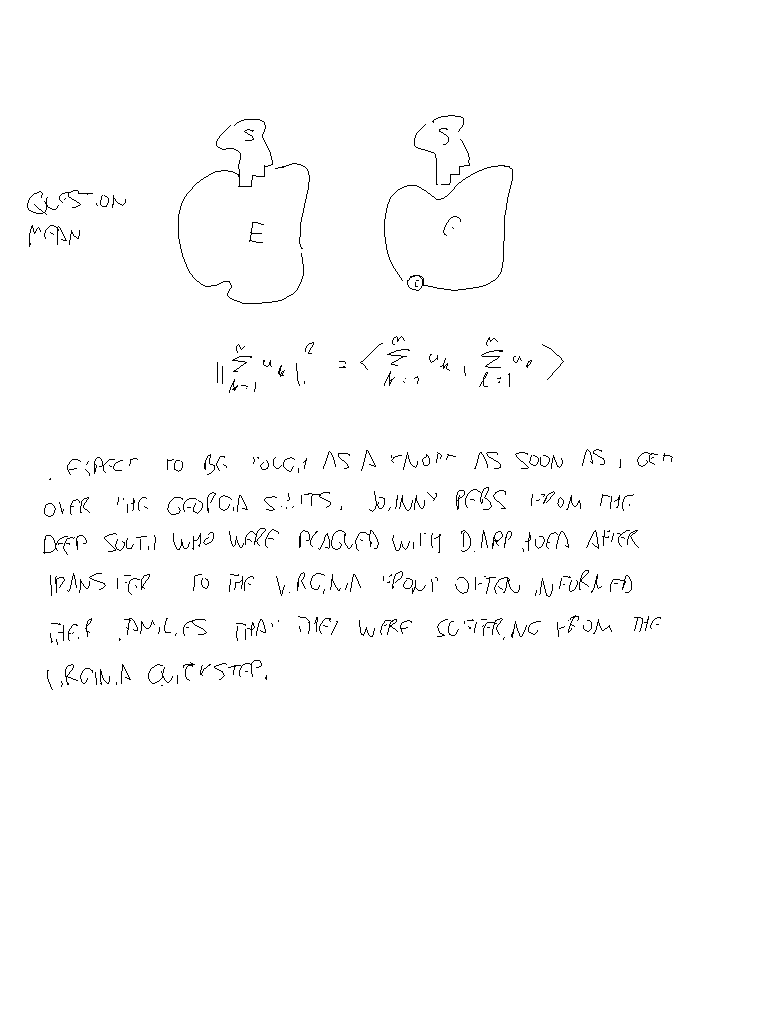 S S
QUESTION
MEAN
E E
i
||∑_{k=1}^{n} u_k||^2 = ⟨∑_{k=1}^{n} u_k, ∑_{l=1}^{n} u_l⟩
I EXPECT TO BE TOUGH AS A KNOT AS SOON AS I GET
OVER THE GEORGIA SHITS. JOHNNY REBS FROM THE
DEEP SOUTH WHO WERE PLAGUED WITH DIARRHOEA AFTER
TRANSFER TO THE VIRGINIA FRONT OFTEN INFORMED
THEIR FAMILIES THAT THEY WERE SUFFERING FROM THE
VIRGINIA QUICKSTEP.